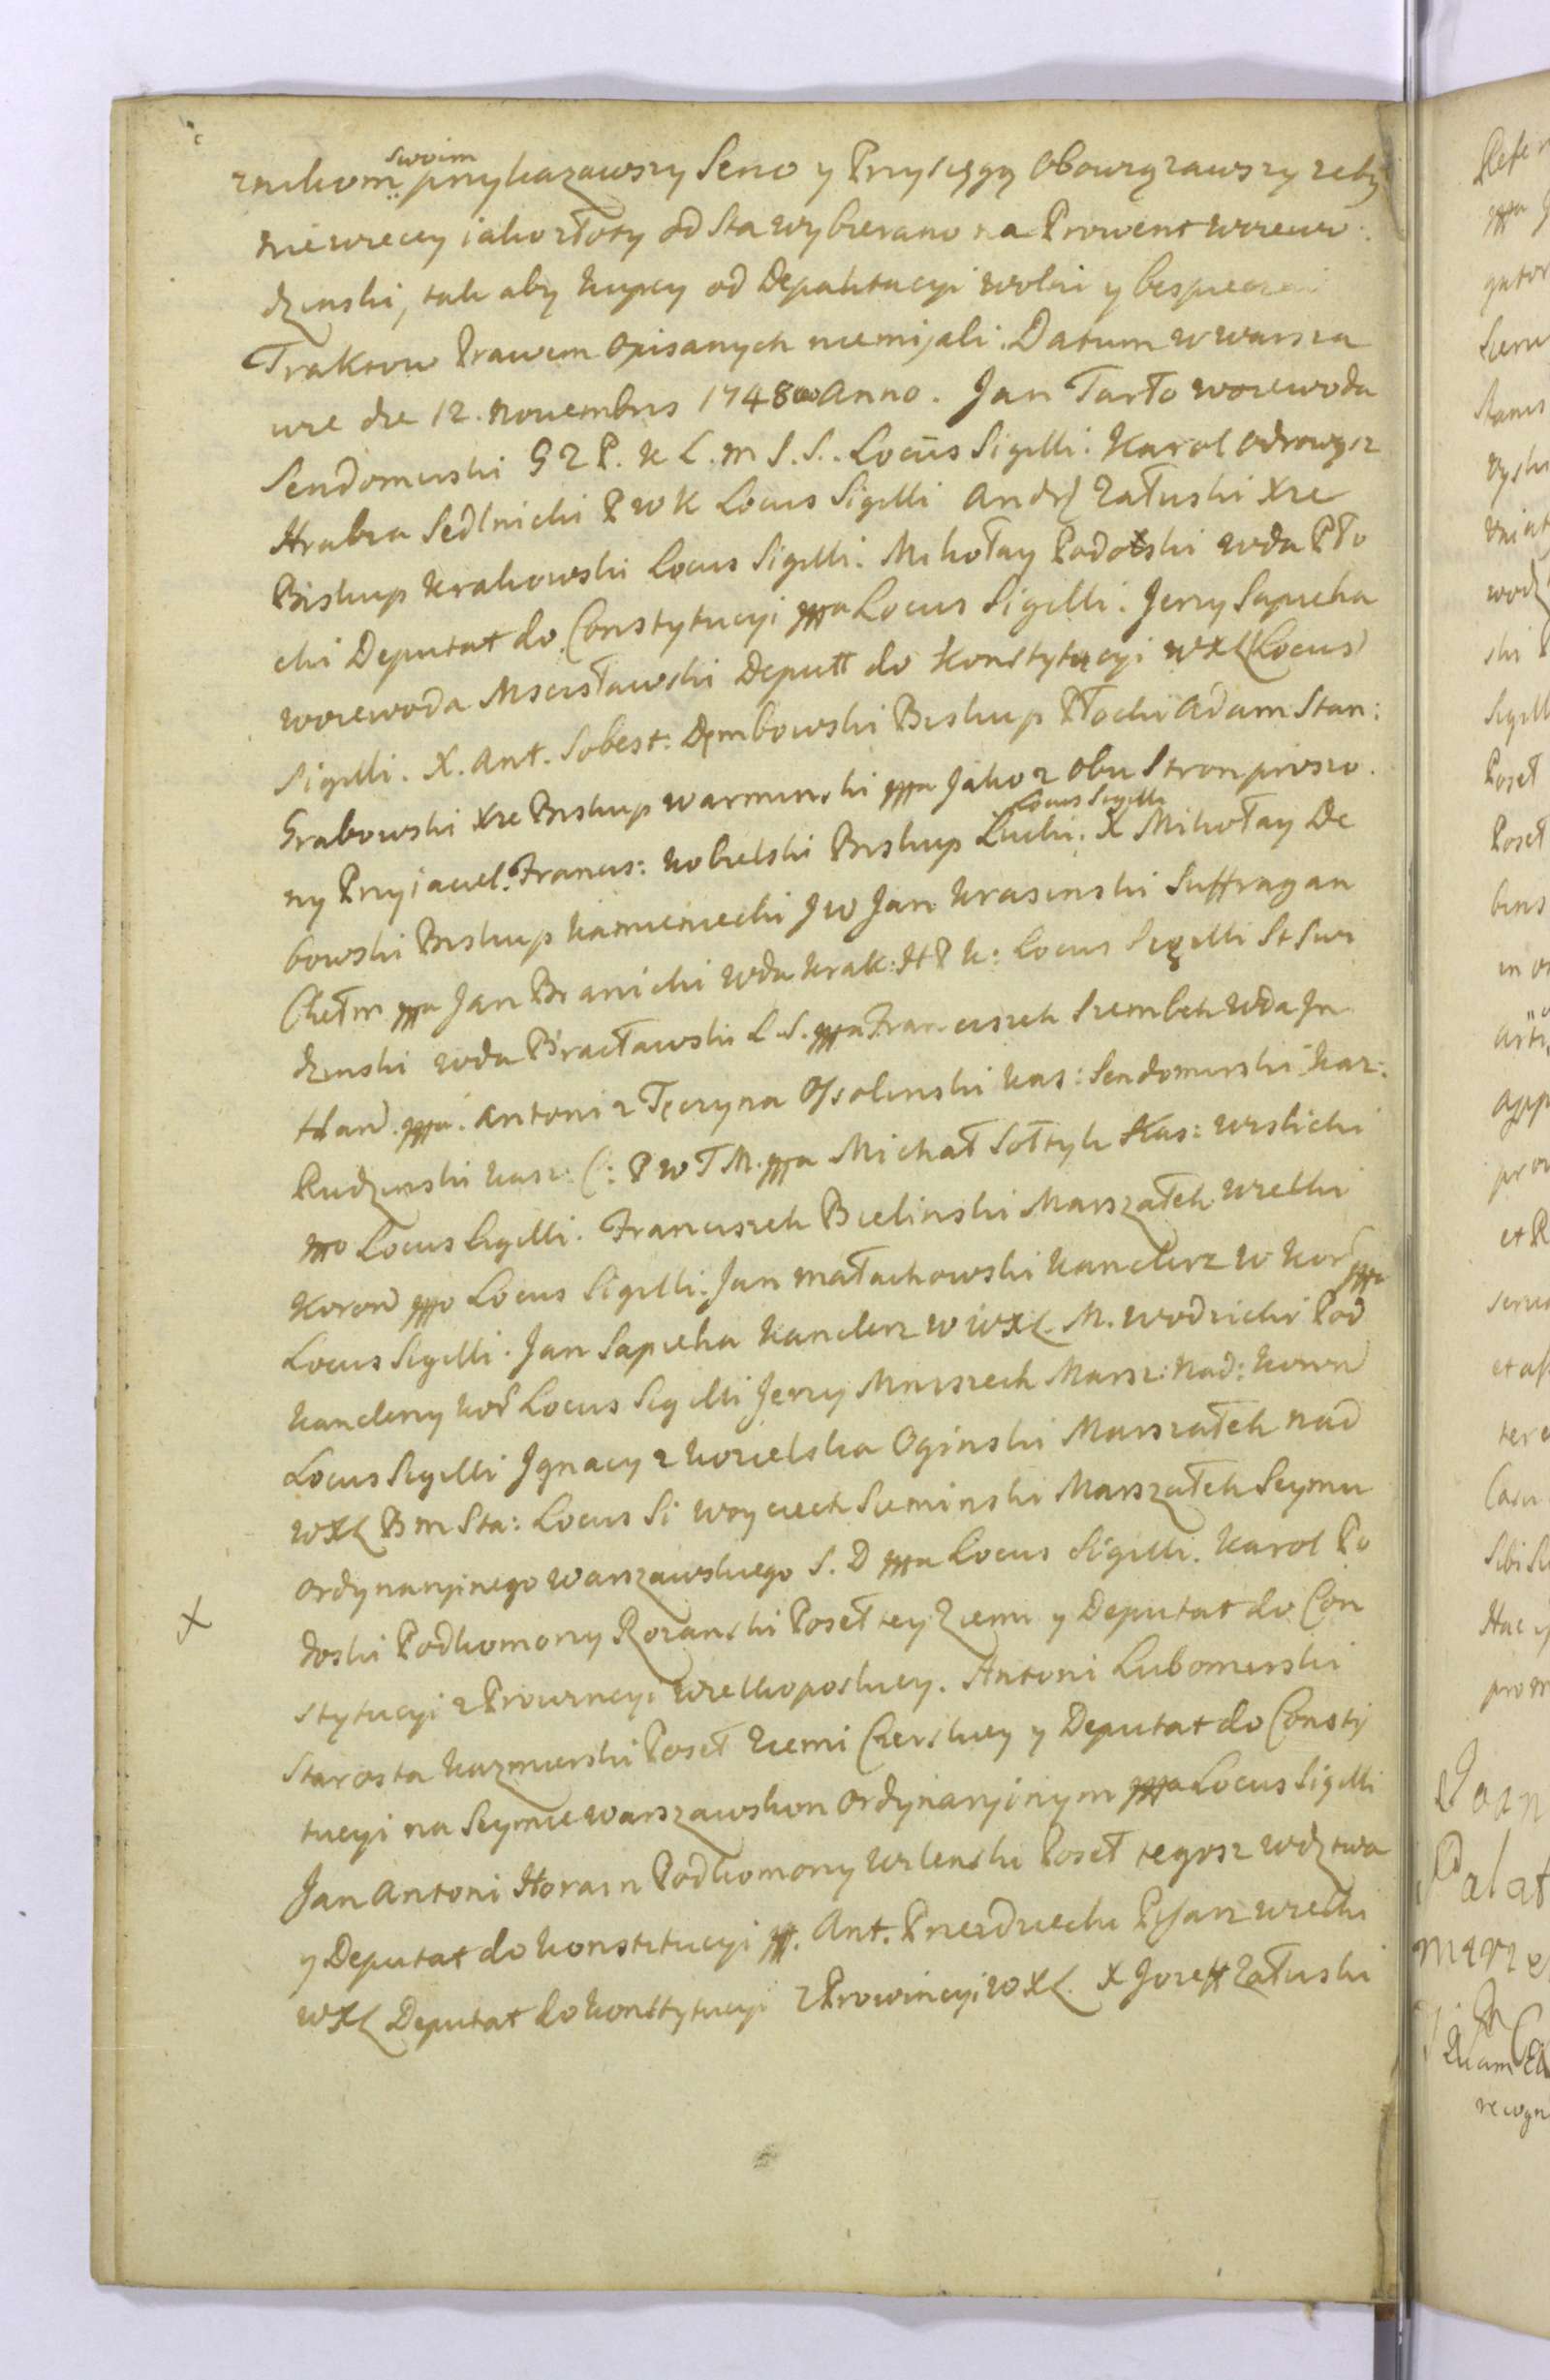 znikom swoim przykazawszy Serio y Przysięgą obowiązawszy zeby
niewiecey iako złoty od Sta wybierano na Prowent woiewo
dzinski, tak aby kupcy od Depaktacyi wolni y bespieczni
Traktow Prawem opisanych niemijali. Datum w Warsza
wie die 12. Novembris 1748 Anno. Jan Tarło woiewoda
Sendomirski G Z P. K L. m S. S.. Locus Sigilli. Karol Odrowąsz
Hrabia Sedlnicki P W K Locus Sigilli Andrz Załuski Xże
Biskup Krakowski Locus Sigilli. Mikołay Podoski wda Pło
cki Deputat do Constytucyi mpa Locus Sigilli. Jerzy Sapieha
woiewoda Mscisławski Deputt do Konstytucyi WXL Locus
Sigilli. X. Ant. Sebest: Dembowski Biskup Płocki Adam Stan:
Grabowski Xże Biskup warminski mpa Jako z obu Stron proszo
ny Przyiaciel. Francis: Kobielski Biskup Łucki. Locus Sigilli X Mikołay De
bowski Biskup Kamieniecki J W Jan Krasinski Suffragan
Chełm mpa Jan Branicki wda Krak: H P K: Locus Sigilli St Swi
dzinski wda Bracławski L. S. mpa Franciszek Szembek Wda In
fland. mpa. Antoni z Tęczyna Ossolinski Kas: Sendomirski Kaz:
Rudzinski Kasz: C: P W T M. mpa Michał Sołtyk Kas: wislicki
mpo Locus Sigilli. Franciszek Bielinski Marszałek wielki
Koron mpo Locus Sigilli. Jan Małachowski Kanclerz W Kor mpa
Locus Sigilli. Jan Sapieha Kanclerz W WXL. M. Wodzicki Pod
kanclerzy Kor Locus Sigilli Jerzy Mniszech Marsz: Nad: Koron
Locus Sigilli Ignacy z Kozielska Oginski Marszałek nad
WXL B m Sta: Locus Si Woyciech Sieminski Marszałek Seymu
Ordynaryinego warszawskiego S. D mpa Locus Sigilli. Karol Po
doski Podkomorzy Rozanski Poseł tey Ziemi y Deputat do Con
stytucyi z Prowincyi wielkopolskiey. Antoni Lubomirski
Starosta Kazmirski Poseł Ziemi Czerskiey y Deputat do Consty
tucyi na Seymie warszawskim Ordynaryinym mpa Locus Sigilli
Jan Antoni Horain Podkomorzy wilenski Poseł tegosz wdztwa
y Deputat do Konstitucyi mp. Ant. Przezdziecki Pisarz wielki
WXL Deputat do Konstytucyi z Prowincyi WXL. X Jozeff Załuski